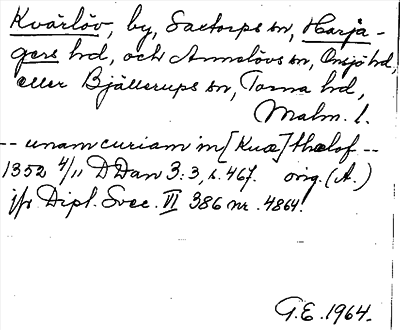 Kvärlöv, by, Saxtorps sn, Harja-
gers hd, och Annelövs sn, Onsjö hd,
eller Bjällerups sn, Torna hd,
Malm. l.
-- unam curiam in [Kuæ]thælof --
1352 4/11 DDan 3:3, s. 467. orig. (A.)
jfr Dipl. Svec. VI 386 nr. 4864.
G.E. 1964.